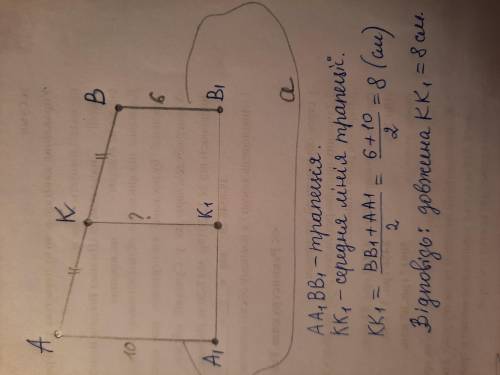 A
K
B
10
?
6
A₁
K₁
B₁
a
AA₁BB₁ - трапеція.
KK₁ - середня лінія трапеції.
KK₁ = BB₁ + AA₁ / 2 = 6 + 10 / 2 = 8 (см)
Відповідь: довжина KK₁ = 8 см.